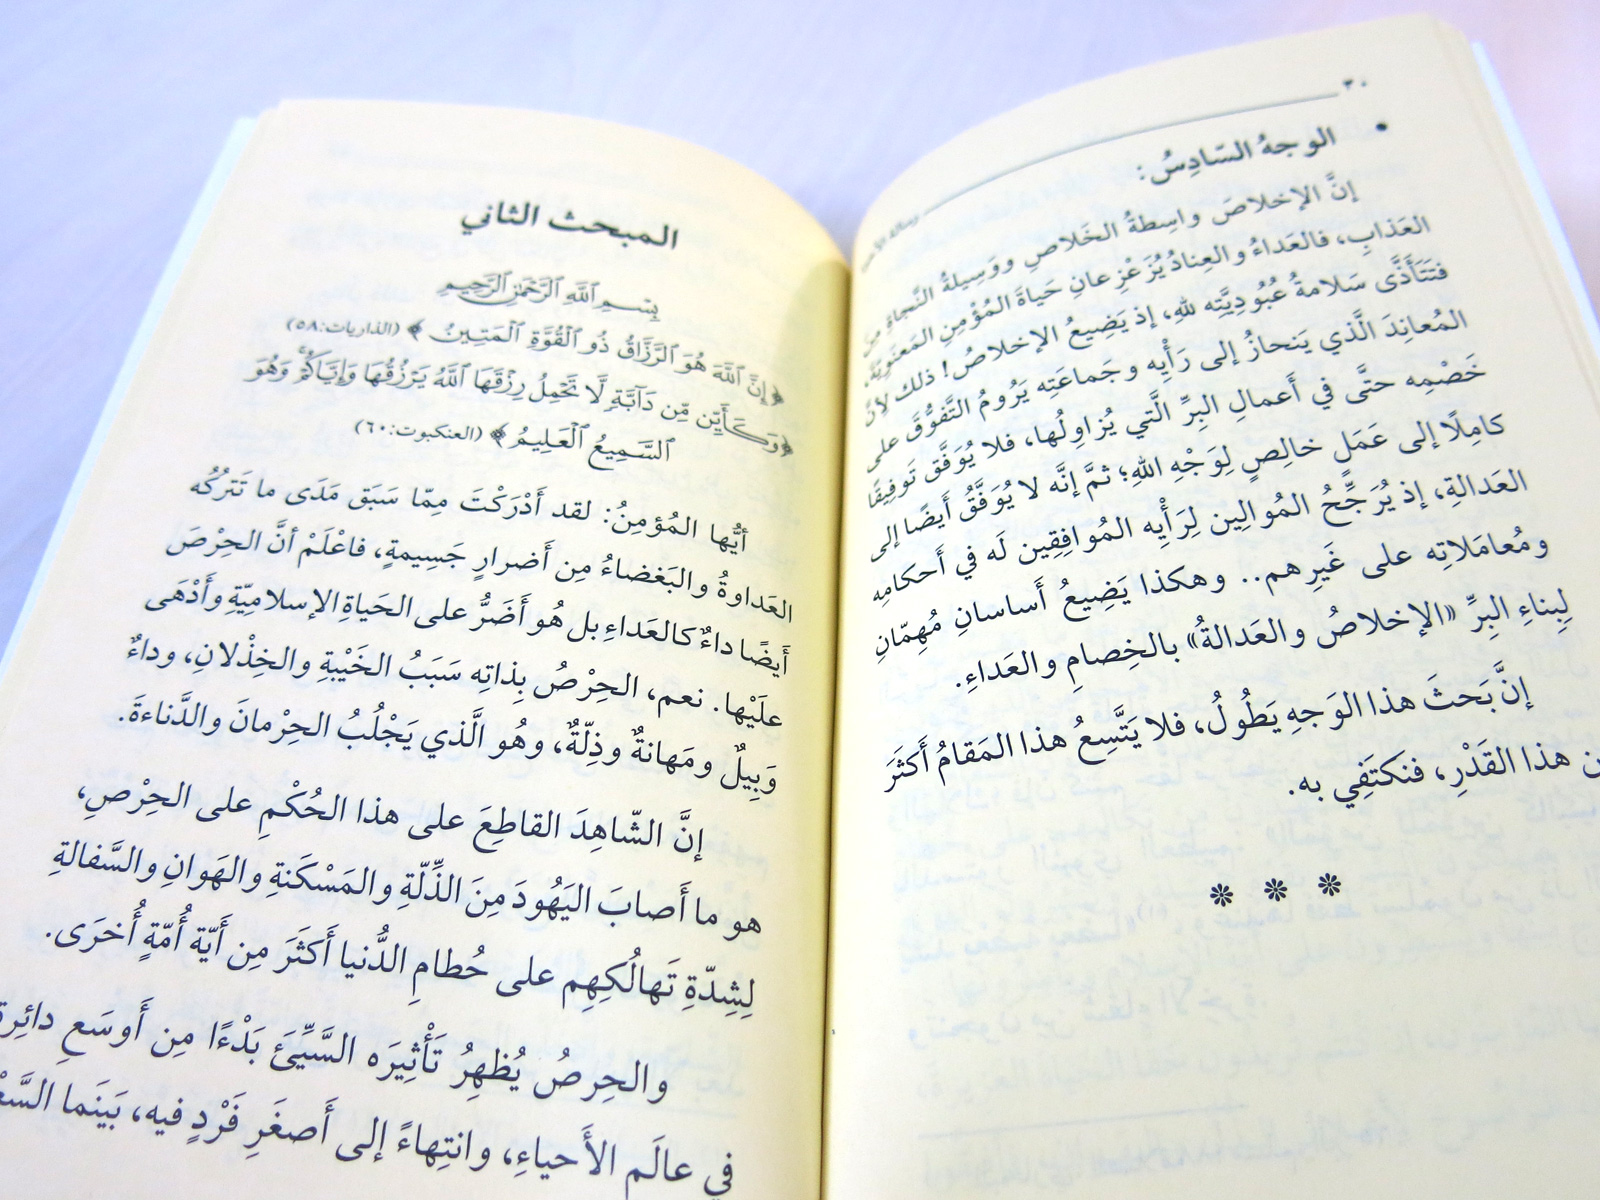 ٣٠
• الوجهُ السّادِسُ:
إنَّ الإخلاصَ واسِطةُ الخَلاصِ ووَسِيلةُ النَّجاةِ مِنَ
العَذابِ، فالعَداءُ والعِنادُ يُزَعْزِعانِ حَياةَ المُؤْمِنِ المَعنَوِيّةَ،
فتَتَأَذَّى سَلامةُ عُبُودِيَّتِه للهِ، إذ يَضِيعُ الإخلاصُ! ذلك لِأنَّ
المُعانِدَ الَّذي يَنحازُ إلى رَأْيِه وجَماعَتِه يَرُومُ التَّفوُّقَ على
خَصْمِه حتَّى في أَعمالِ البِرِّ الَّتي يُزاوِلُها، فلا يُوَفَّق تَوفِيقًا
كامِلًا إلى عَمَلٍ خالِصٍ لِوَجْهِ اللهِ؛ ثمَّ إنَّه لا يُوَفَّقُ أَيضًا إلى
العَدالةِ، إذ يُرَجِّحُ المُوالِين لِرَأْيِه المُوافِقِين لَه في أَحكامِه
ومُعامَلاتِه على غَيرِهم.. وهكذا يَضِيعُ أَساسانِ مُهِمّانِ
لِبِناءِ البِرِّ «الإخلاصُ والعَدالةُ» بالخِصامِ والعَداءِ.
إنَّ بَحثَ هذا الوَجهِ يَطُولُ، فلا يَتَّسِعُ هذا المَقامُ أَكثَرَ
مِن هذا القَدْرِ، فنَكتَفِي به.
المبحث الثاني
بِسْمِ ٱللَّهِ ٱلرَّحْمَٰنِ ٱلرَّحِيمِ
﴿إِنَّ ٱللَّهَ هُوَ ٱلرَّزَّاقُ ذُو ٱلْقُوَّةِ ٱلْمَتِينُ﴾ (الذاريات:٥٨)
﴿وَكَأَيِّن مِّن دَآبَّةٍ لَّا تَحْمِلُ رِزْقَهَا ٱللَّهُ يَرْزُقُهَا وَإِيَّاكُمْ وَهُوَ
ٱلسَّمِيعُ ٱلْعَلِيمُ﴾ (العنكبوت:٦٠)
أيُّها المُؤمِنُ: لقد أَدْرَكْتَ مِمّا سَبَق مَدَى ما تَترُكُه
العَداوةُ والبَغضاءُ مِن أَضرارٍ جَسِيمةٍ، فاعْلَمْ أنَّ الحِرْصَ
أَيضًا داءٌ كالعَداءِ بل هُو أَضَرُّ على الحَياةِ الإسلاميّةِ وأَدْهَى
علَيْها. نعم، الحِرْصُ بِذاتِه سَبَبُ الخَيْبةِ والخِذْلانِ، وداءٌ
وَبِيلٌ ومَهانةٌ وذِلّةٌ، وهُو الَّذي يَجْلُبُ الحِرْمانَ والدَّناءةَ.
إنَّ الشّاهِدَ القاطِعَ على هذا الحُكْمِ على الحِرْصِ،
هو ما أَصابَ اليَهُودَ مِنَ الذِّلّةِ والمَسْكَنةِ والهَوانِ والسَّفالةِ
لِشِدّةِ تَهالُكِهِم على حُطامِ الدُّنيا أَكثَرَ مِن أَيّة أُمّةٍ أُخرَى.
والحِرصُ يُظهِرُ تَأْثِيرَه السَّيِّئَ بَدْءًا مِن أَوسَعِ دائِرةٍ
في عالَم الأَحياءِ، وانتِهاءً إلى أَصغَرِ فَرْدٍ فيه، بَينَما